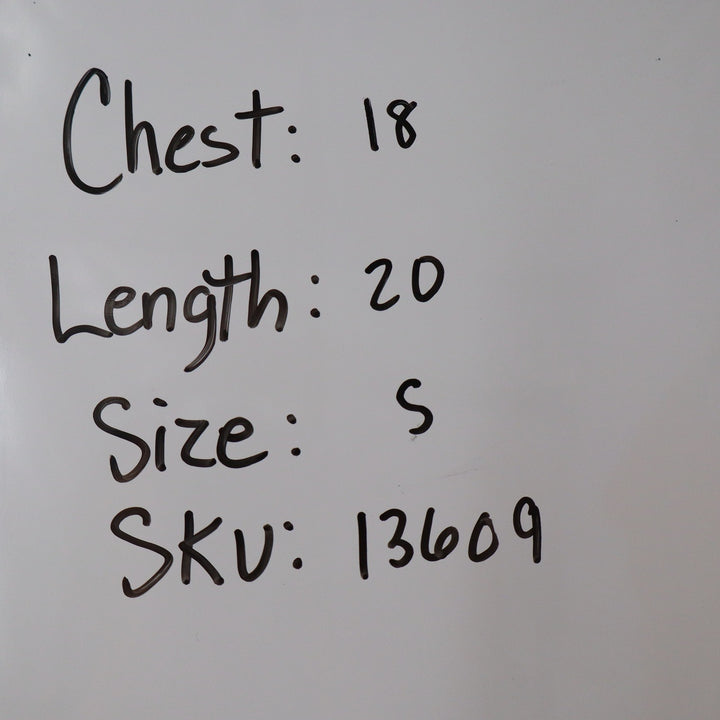 Chest: 18
Length: 20
Size: S
SKU: 13609